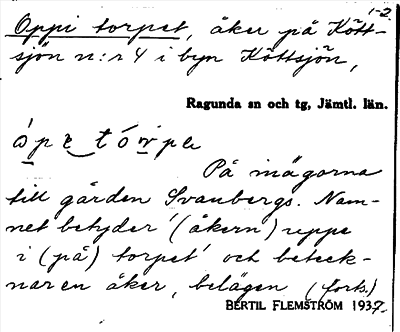 1-2
Oppi torpet, åker på Kött-
sjön n:r 4 i byn Köttsjön,
Ragunda sn och tg, Jämtl. län.
På mägorna
till gården Svanbergs. Nam-
net betyder '(åkern) uppe
i (på) torpet' och beteck-
nar en åker, belägen (forts.)
BERTIL FLEMSTRÖM 1937.